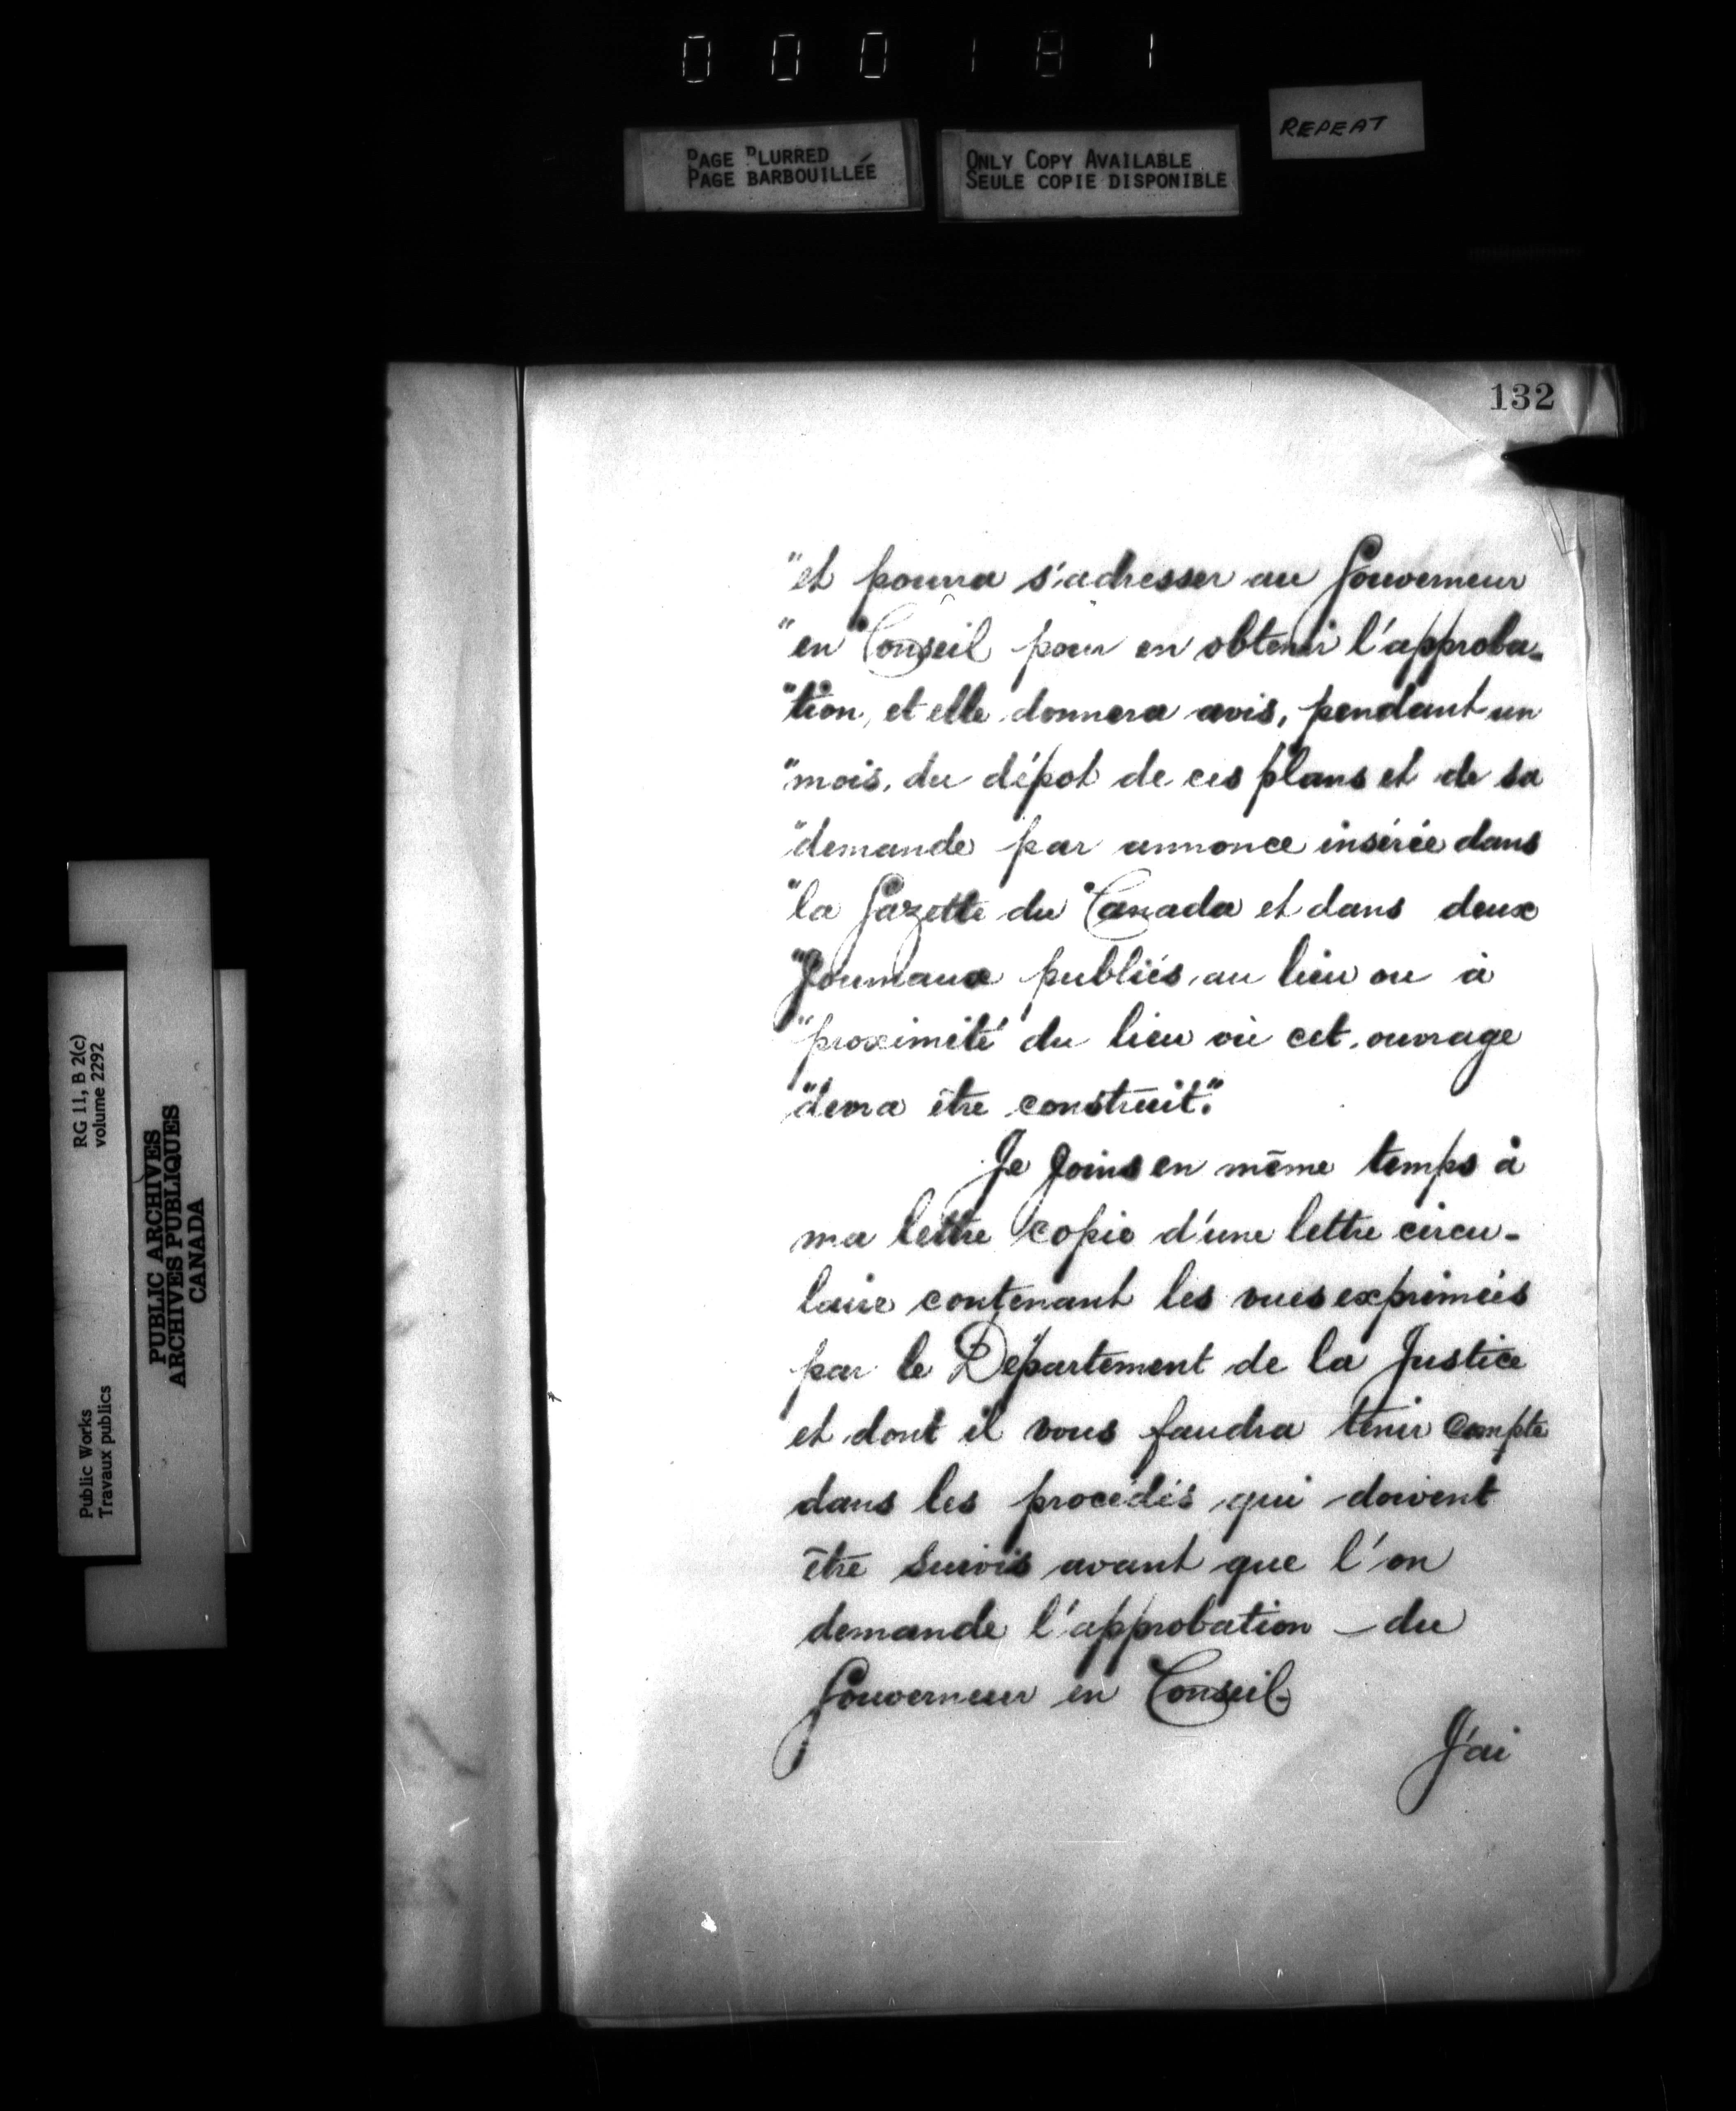 000181
PAGE BLURRED
PAGE BARBOUILLÉE
ONLY COPY AVAILABLE
SEULE COPIE DISPONIBLE
REPEAT
132
"et pourra s'adresser au Gouverneur
"en Conseil pour en obtenir l'approba-
"tion, et elle donnera avis, pendant un
"mois, du dépot de ces plans et de sa
"demande par annonce insérée dans
"la Gazette du Canada et dans deux
"Journaux publiés au lieu ou à
"proximité du lieu où cet ouvrage
"devra être construit."
Je joins en même temps à
ma lettre copie d'une lettre circu-
laire contenant les vues exprimées
par le Département de la Justice
et dont il vous faudra tenir compte
dans les procédés qui doivent
être suivis avant que l'on
demande l'approbation du
Gouverneur en Conseil-
J'ai
RG 11, B 2(c)
volume 2292
PUBLIC ARCHIVES
ARCHIVES PUBLIQUES
CANADA
Public Works
Travaux publics